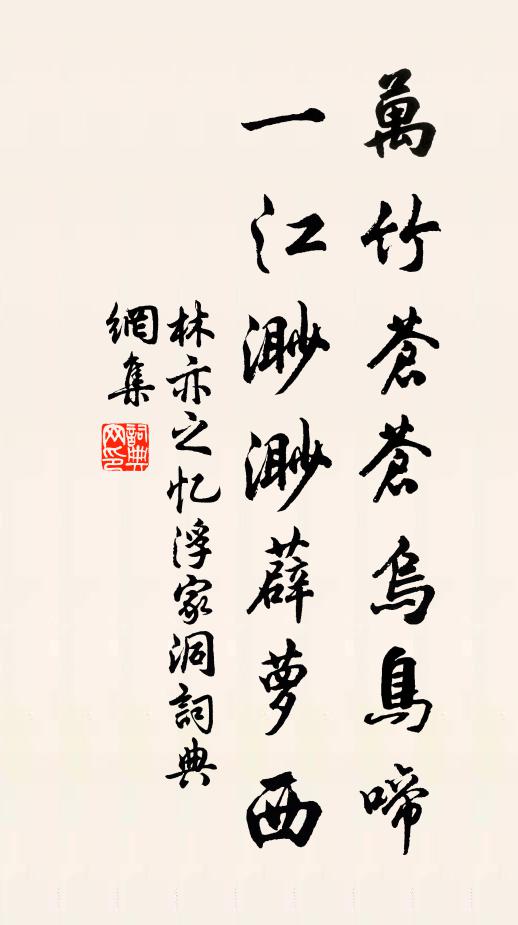 萬竹蒼蒼烏鳥啼
一江渺渺薜萝西
林亦之忆浮家洞詞典
網集
詞典
网印